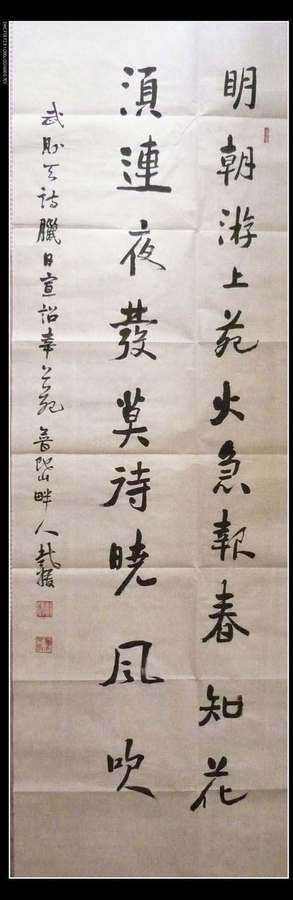 明朝游上苑火急報春知花
須連夜發莫待曉風吹
武則天詩臘日宣詔幸上苑